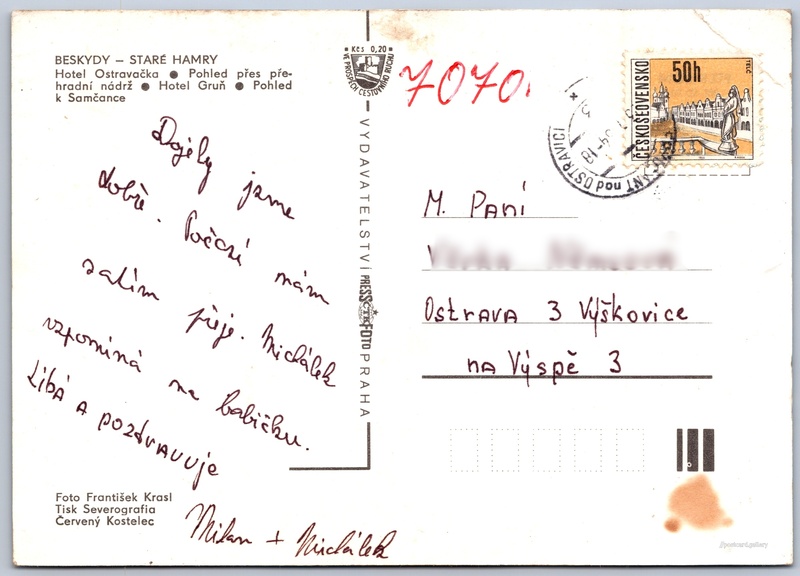 BESKYDY – STARÉ HAMRY
Hotel Ostravačka ● Pohled přes pře-
hradní nádrž ● Hotel Gruň ● Pohled
k Samčance
Kčs 0,20
VE PROSPĚCH CESTOVNÍHO RUCHU
7070.
ČESKOSLOVENSKO
50h
TELČ
nad OSTRAVICÍ
VYDAVATELSTVÍ PRESSFOTO PRAHA
Dojely jsme
dobře. Počasí nám
zatím přeje. Michálek
vzpomíná na babičku.
Líbá a pozdravuje
Milan + Michálek
M. Paní
Ostrava 3 Výškovice
na Výspě 3
Foto František Krasl
Tisk Severografia
Červený Kostelec